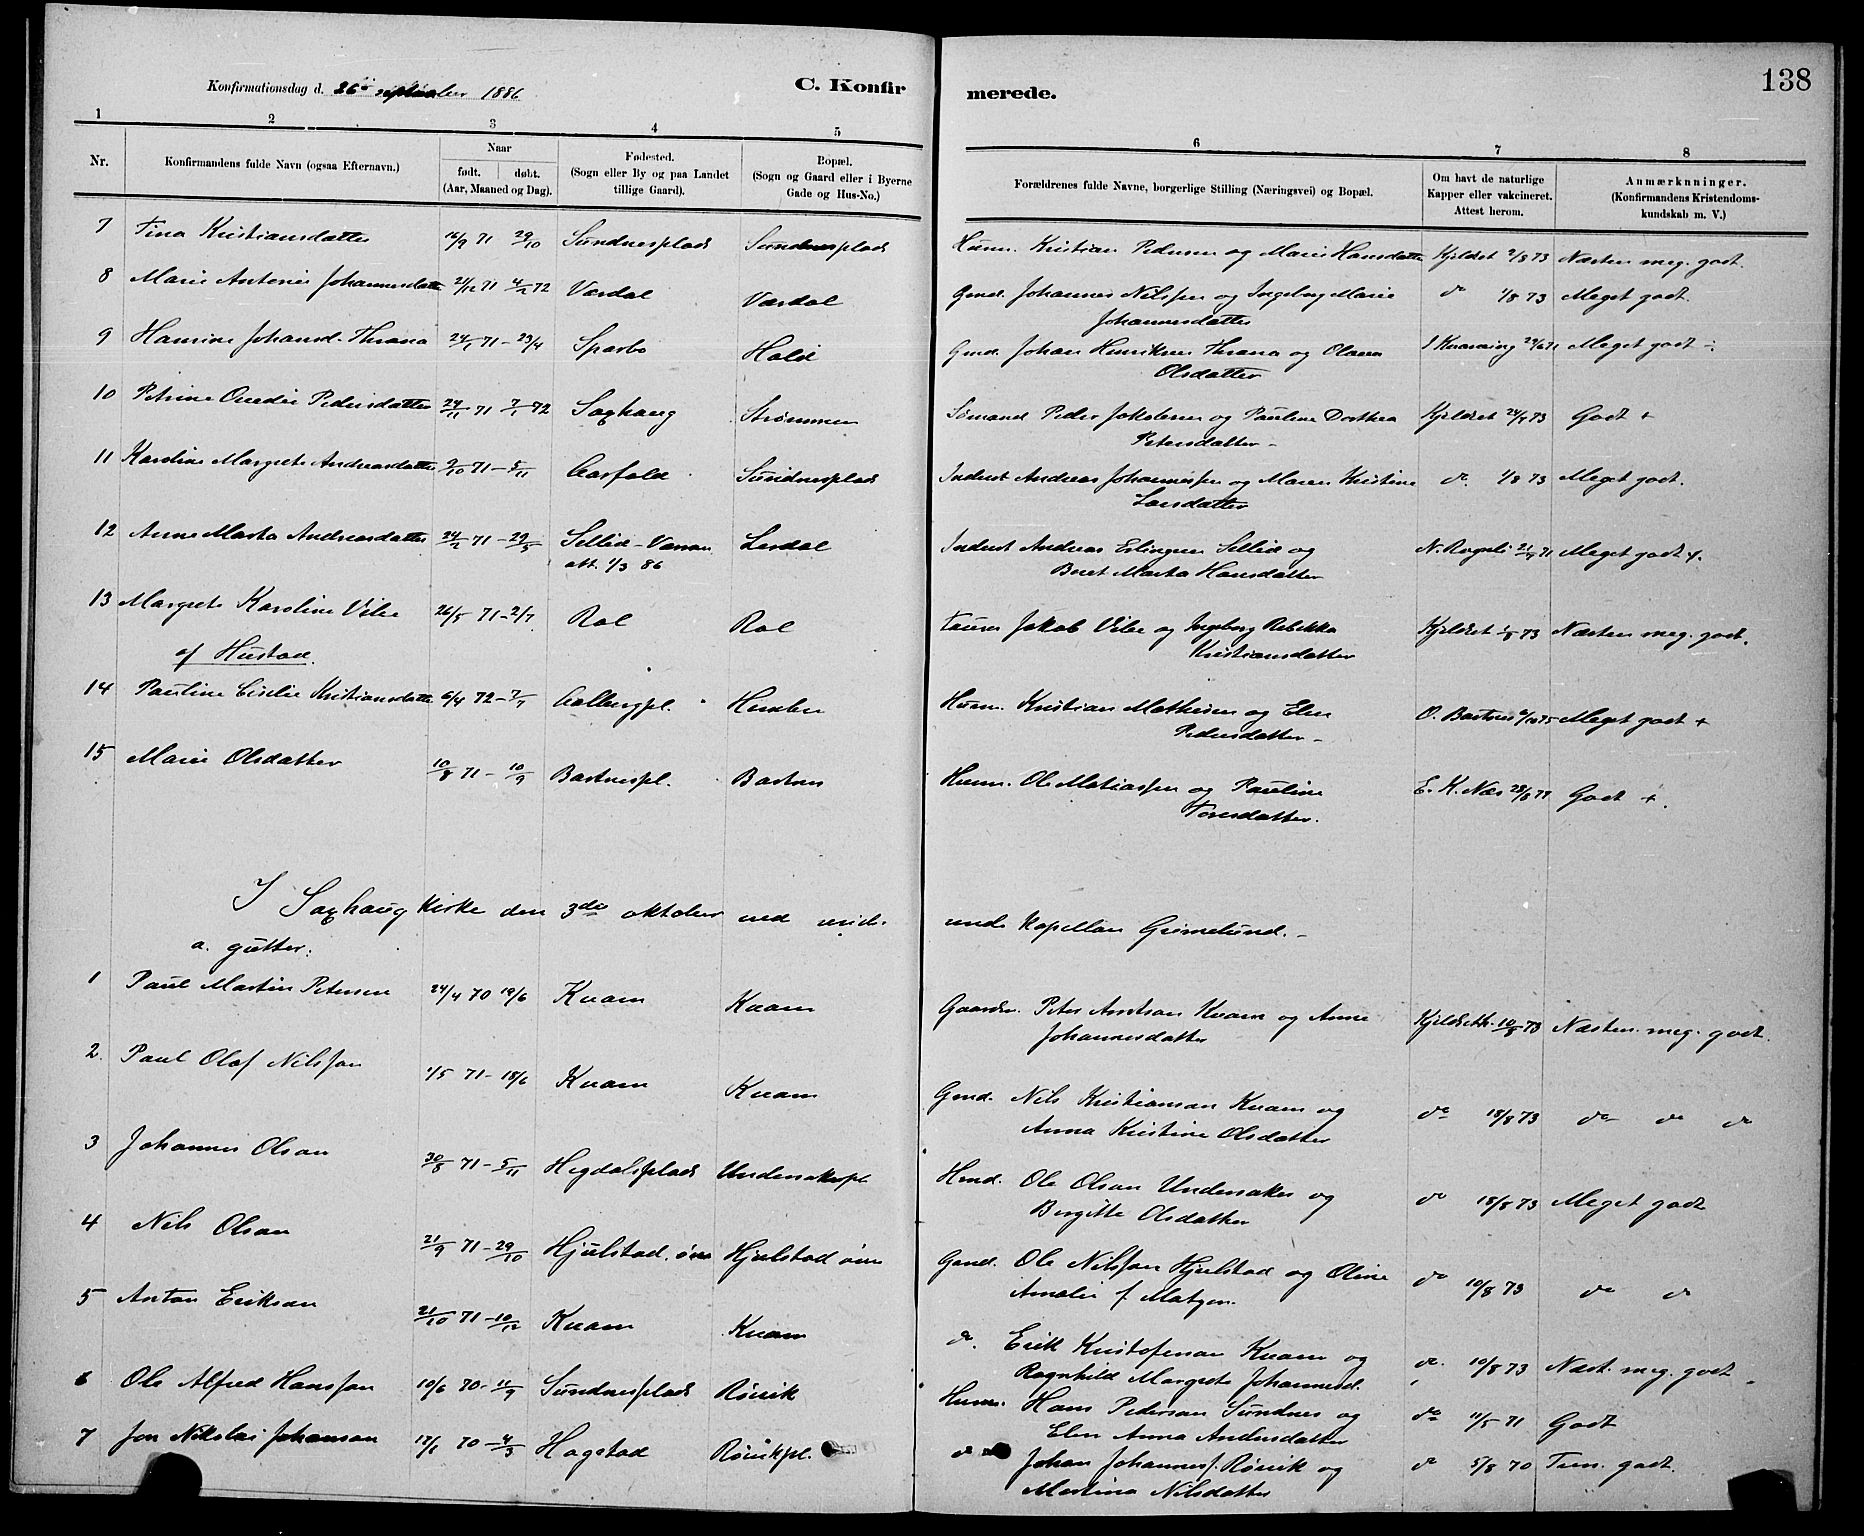 138
Konfirmationsdag d. 26de september 1886
C. Konfirmerede.
1 2 3 4 5 6 7 8
Nr. Konfirmandens fulde Navn (ogsaa Efternavn.) Naar født. døbt. (Aar, Maaned og Dag). Fødested. (Sogn eller By og paa Landet tillige Gaard). Bopæl. (Sogn og Gaard eller i Byerne Gade og Hus-No.) Forældrenes fulde Navne, borgerlige Stilling (Næringsvei) og Bopæl. Om havt de naturlige Kapper eller vakcineret. Attest herom. Anmærkninger. (Konfirmandens Kristendomskundskab m. V.)
7 Tina Kristiansdatter 16/9 71 29/10 Sundnesplads Sundnesplads Husm. Kristian Pedersen og Marie Hansdatter Kjeldset 2/8 73 Næsten meg. godt.
8 Marie Antonie Johannesdatter 21/12 71 4/2 72 Værdal Værdal Gmd. Johannes Nilssen og Ingeborg Marie
Johannesdatter do 1/8 73 Meget godt.
9 Hansine Johansd. Thrana 24/1 71 - 23/4 Sparbo Hald Gmd. Johan Henriksen Thrana og Olava
Olsdatter Meget godt ÷
10 Petrine Pedersdatter 24/11 71 7/1 72 Saxhaug Strømmen Sømand Peder Jakobsen og Pauline Dorthea
Petersdatter - Kjeldset 24/7 73 Godt +
11 Karoline Margrete Andreasdatter 9/10 71 - 5/11 Aasfald Sundnesplads Inderst Andreas Johannessen og Maren Kristine
Larsdatter do. 1/8 73 Meget godt.
12 Anne Marta Andreasdatter 24/2 71 - 29/5 Sellid - Væran
att. 1/3 86 Lerdal Inderst Andreas Erlingsen Sellid og
Beret Marta Hansdatter 71 Meget godt +.
13 Margrete Karoline Vibe
af Hustad. 26/5 71 - 2/7 Rol Rol Jakob Vibe og Ingeborg Rebekka
Kristiansdatter Kjeldset 1/8 73 Næsten meg. godt.
14 Pauline Cecilie Kristiansdatter 6/4 72 - 7/7 Aalbergpl. Husm. Kristian Mathisen og Elen
Pedersdatter - O. Bartnes Meget godt +
15 Marie Olsdatter 10/8 71 - 10/9 Bartnespl. Bartnes Husm. Ole Matiassen og Pauline
Toresdatter. E. K. Næs Godt +.
I Saxhaug Kirke den 3de oktober ved residerende Kapellan Grimelund. -
a. gutter:
1 Paul Martin Petersen 24/4 70 19/6 Kvam Kvam Gaardm. Peter Antsan Kvam og Anne
Johannesdatter Kjeldset 10/8 73 Næsten meg. godt.
2. Paul Olaf Nilssan 1/5 71 - 18/6 Kvam Kvam Gmd. Nils Kristiansan Kvam og
Anna Kristine Olsdatter do 18/8 73 do do do
3 Johannes Olsan 30/8 71 - 5/11 Hegdalsplads Undersakerpl. Hmd. Ole Olsan Undersaker og
Bergitte Olsdatter do 18/8 73 Meget godt
4 Nils Olsan 21/9 71 - 29/10 Hjulstad øvre Hjulstad øvre Gmd. Ole Nilssan Hjulstad og Oline
Amalie f. Matzen. do 10/8 73 do do
5 Anton Eriksan 21/10 71 - 10/12 Kvam Kvam do. Erik Kristofersan Kvam og
Ragnhild Margrete Johannesd. do. 10/8 73 Næst. meg. godt
6 Ole Alfred Hanssan 10/6 70 - 11/9 Sundnesplads Røvik Husm. Hans Pedersan Sundnes og
Elen Anna Andersdatter do 11/5 71 Godt
7 Jon Nikolai Johansan 17/1 70 - 4/3 Hogstad Røvikpl. do Johan Johanness. Røvik og
Martina Nilsdatter do 5/8 70 Tem. godt.